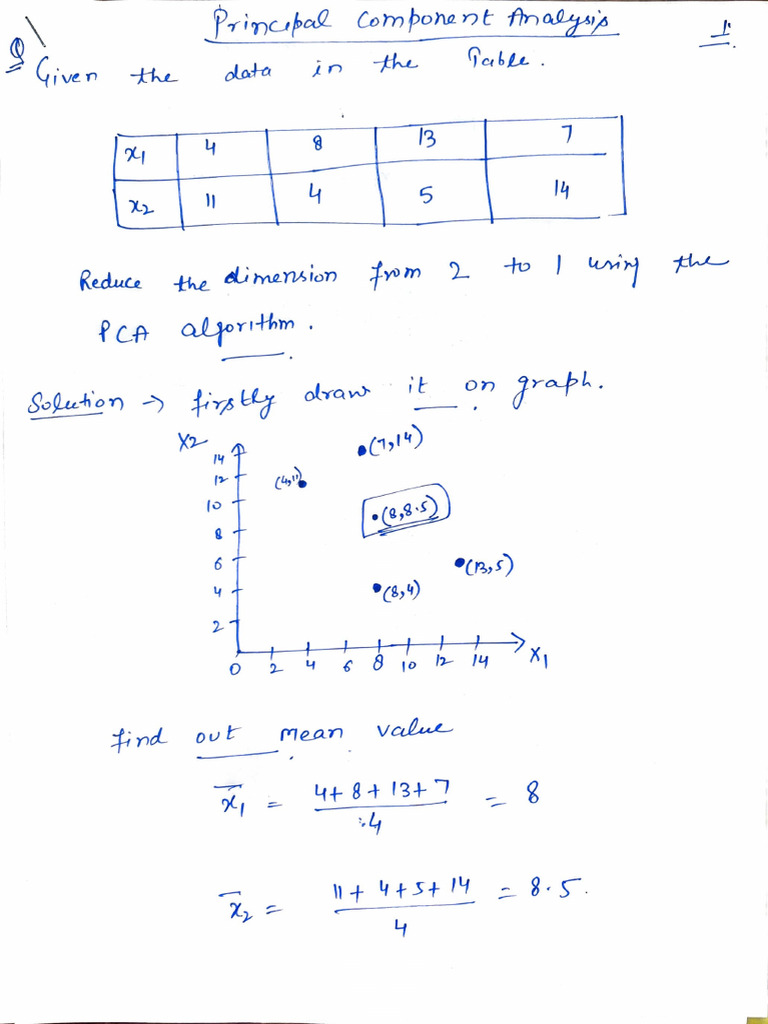 Principal Component Analysis
1.
Q Given the data in the Table.
x1 4 8 13 7
x2 11 4 5 14
Reduce the dimension from 2 to 1 using the
PCA algorithm.
Solution → firstly draw it on graph.
X2
14
12
10
8
6
4
2
0 2 4 6 8 10 12 14 X1
(7,14)
(4,11)
(8,8.5)
(13,5)
(8,4)
find out mean value
x̄1 = 4+8+13+7 / 4 = 8
x̄2 = 11+4+5+14 / 4 = 8.5.